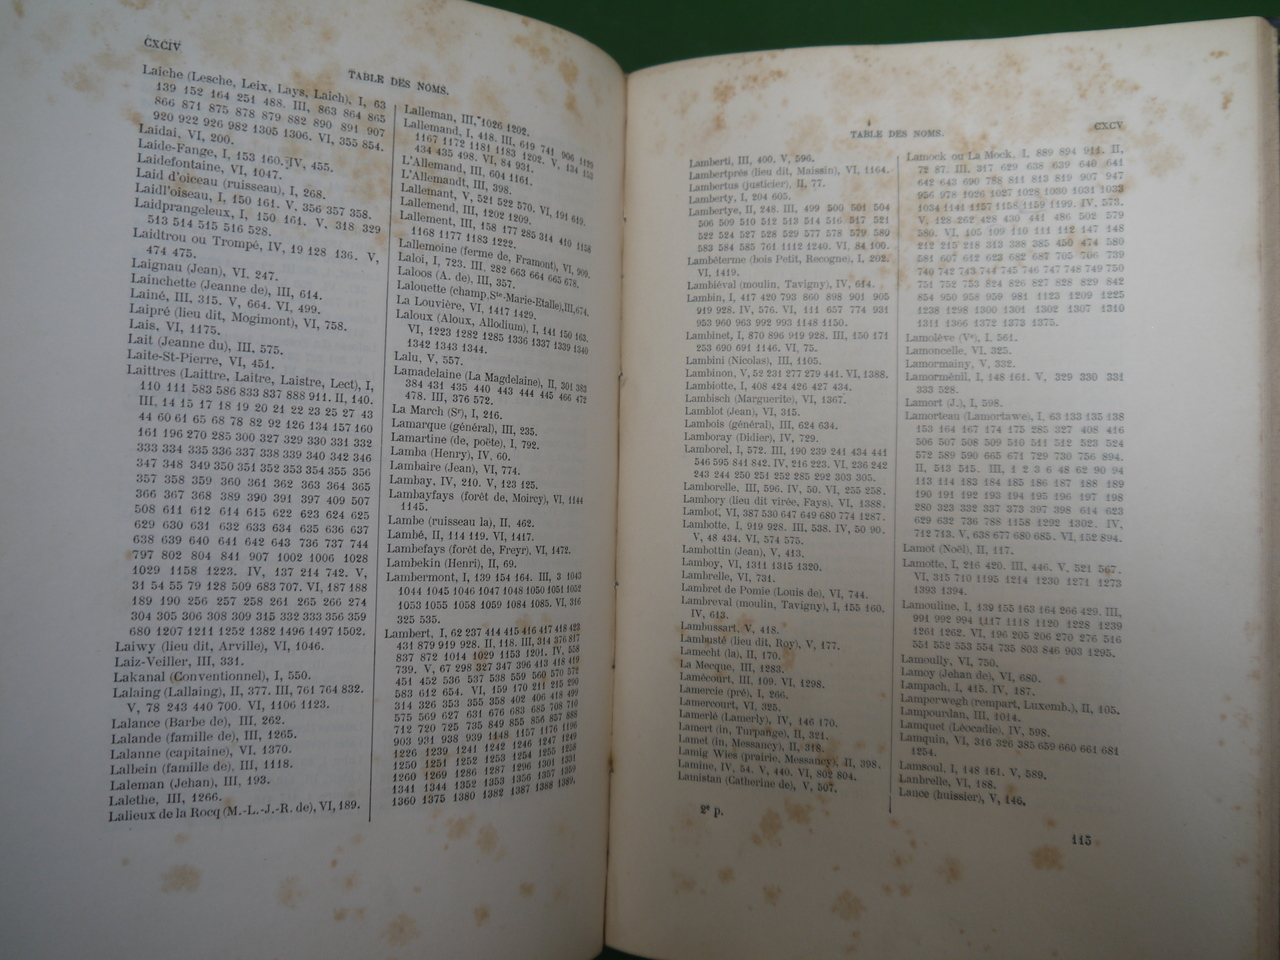 CXCIV
TABLE DES NOMS.
Laiche (Lesche, Leix, Lays, Laich), I, 63
139 152 164 251 488. III, 863 864 865
866 871 875 878 879 882 890 891 907
920 922 926 982 1305 1306. VI, 355 854.
Laidai, VI, 200.
Laide-Fange, I, 153 160. IV, 455.
Laidefontaine, VI, 1047.
Laid d'oiceau (ruisseau), I, 268.
Laidl'oiseau, I, 150 161. V, 356 357 358.
Laidprangeleux, I, 150 161. V, 318 329
513 514 515 516 528.
Laidtrou ou Trompé, IV, 19 128 136. V,
474 475.
Laignau (Jean), VI, 247.
Lainchette (Jeanne de), III, 614.
Lainé, III, 315. V, 664. VI, 499.
Laipré (lieu dit, Mogimont), VI, 758.
Lais, VI, 1175.
Lait (Jeanne du), III, 575.
Laite-St-Pierre, VI, 451.
Laittres (Laittre, Laitre, Laistre, Lect), I,
110 111 583 586 833 837 888 911. II, 140.
III, 14 15 17 18 19 20 21 22 23 25 27 43
44 60 61 65 68 78 82 92 126 134 157 160
161 196 270 285 300 327 329 330 331 332
333 334 335 336 337 338 339 340 342 346
347 348 349 350 351 352 353 354 355 356
357 358 359 360 361 362 363 364 365
366 367 368 389 390 391 397 409 507
508 611 612 614 615 622 623 624 625
629 630 631 632 633 634 635 636 637
638 639 640 641 642 643 736 737 744
797 802 804 841 907 1002 1006 1028
1029 1158 1223. IV, 137 214 742. V,
31 54 55 79 128 509 683 707. VI, 187 188
189 190 256 257 258 261 265 266 274
304 305 306 308 309 315 332 333 356 359
680 1207 1211 1252 1382 1496 1497 1502.
Laiwy (lieu dit, Arville), VI, 1046.
Laiz-Veiller, III, 331.
Lakanal (Conventionnel), I, 550.
Lalaing (Lallaing), II, 377. III, 761 764 832.
V, 78 243 440 700. VI, 1106 1123.
Lalance (Barbe de), III, 262.
Lalande (famille de), III, 1265.
Lalanne (capitaine), VI, 1370.
Lalbein (famille de), III, 1118.
Laleman (Jehan), III, 193.
Lalethe, III, 1266.
Lalieux de la Rocq (M.-L.-J.-R. de), VI, 189.
Lalleman, III, 1026 1202.
Lallemand, I, 418. III, 619 741 906 1129
1167 1172 1181 1183 1202. V, 134 153
434 435 498. VI, 84 931.
L'Allemand, III, 604 1161.
L'Allemandt, III, 398.
Lallemant, V, 521 522 570. VI, 191 619.
Lallemend, III, 1202 1209.
Lallement, III, 158 177 285 314 410 1158
1168 1177 1183 1222.
Lallemoine (ferme de, Framont), VI, 909.
Laloi, I, 723. III, 282 663 664 665 678.
Laloos (A. de), III, 357.
Lalouette (champ, Ste-Marie-Etalle), III, 674.
La Louvière, VI, 1417 1429.
Laloux (Aloux, Allodium), I, 141 150 163.
VI, 1223 1282 1285 1336 1337 1339 1340
1342 1343 1344.
Lalu, V, 557.
Lamadelaine (La Magdelaine), II, 301 383
384 431 435 440 443 444 445 466 472
478. III, 376 572.
La March (Sr), I, 216.
Lamarque (général), III, 235.
Lamartine (de, poëte), I, 792.
Lamba (Henry), IV, 60.
Lambaire (Jean), VI, 774.
Lambay, IV, 210. V, 123 125.
Lambayfays (forêt de, Moirey), VI, 1144
1145.
Lambe (ruisseau la), II, 462.
Lambé, II, 114 119. VI, 1417.
Lambefays (forêt de, Freyr), VI, 1472.
Lambekin (Henri), II, 69.
Lambermont, I, 139 154 164. III, 3 1043
1044 1045 1046 1047 1048 1050 1051 1052
1053 1055 1058 1059 1084 1085. VI, 316
325 535.
Lambert, I, 62 237 414 415 416 417 418 423
431 879 919 928. II, 118. III, 314 376 817
837 872 1014 1029 1153 1201. IV, 558
739. V, 67 298 327 347 396 413 418 419
451 452 536 537 538 559 560 570 572
583 612 654. VI, 159 170 211 215 290
314 326 353 355 358 402 406 418 499
575 569 627 631 676 683 685 708 710
712 720 725 735 849 855 856 857 888
903 931 938 939 1148 1157 1176 1196
1226 1239 1241 1242 1246 1247 1249
1250 1251 1252 1253 1254 1255 1258
1260 1269 1286 1287 1296 1301 1331
1341 1344 1352 1353 1356 1357 1359
1360 1375 1380 1382 1387 1388 1389.
TABLE DES NOMS.
CXCV
Lamberti, III, 400. V, 596.
Lambertprés (lieu dit, Maissin), VI, 1164.
Lambertus (justicier), II, 77.
Lamberty, I, 204 605.
Lambertye, II, 248. III, 499 500 501 504
506 509 510 512 513 514 516 517 521
522 524 527 528 529 577 578 579 580
583 584 585 761 1112 1240. VI, 84 100.
Lambéterme (bois Petit, Recogne), I, 202.
VI, 1419.
Lambiéval (moulin, Tavigny), IV, 614.
Lambin, I, 417 420 793 860 898 901 905
919 928. IV, 576. VI, 111 657 774 931
953 960 963 992 993 1148 1150.
Lambinet, I, 870 896 919 928. III, 150 171
253 690 691 1146. VI, 75.
Lambini (Nicolas), III, 1105.
Lambinon, V, 52 231 277 279 441. VI, 1388.
Lambiotte, I, 408 424 426 427 434.
Lambisch (Marguerite), VI, 1367.
Lamblot (Jean), VI, 315.
Lambois (général), III, 624 634.
Lamboray (Didier), IV, 729.
Lamborel, I, 572. III, 190 239 241 434 441
546 595 841 842. IV, 216 223. VI, 236 242
243 244 250 251 252 285 292 303 305.
Lamborelle, III, 596. IV, 50. VI, 255 258.
Lambory (lieu dit virée, Fays), VI, 1388.
Lambot, VI, 387 530 647 649 680 774 1287.
Lambotte, I, 919 928. III, 538. IV, 50 90.
V, 48 434. VI, 574 575.
Lambottin (Jean), V, 413.
Lamboy, VI, 1311 1315 1320.
Lambrelle, VI, 731.
Lambret de Pomie (Louis de), VI, 744.
Lambreval (moulin, Tavigny), I, 155 160.
IV, 613.
Lambussart, V, 418.
Lambusté (lieu dit, Roy), V, 177.
Lamecht (la), II, 170.
La Mecque, III, 1283.
Lamécourt, III, 109. VI, 1298.
Lamercie (pré), I, 266.
Lamercourt, VI, 325.
Lamerlé (Lamerly), IV, 146 170.
Lamert (in, Turpange), II, 321.
Lamet (in, Messancy), II, 318.
Lamig Wies (prairie, Messancy), II, 398.
Lamine, IV, 54. V, 440. VI, 802 804.
Lamistan (Catherine de), V, 507.
2e p.
Lamock ou La Mock, I, 889 894 911. II,
72 87. III, 317 629 638 639 640 641
642 643 690 788 811 813 819 907 947
956 978 1026 1027 1028 1030 1031 1033
1034 1141 1157 1158 1159 1199. IV, 573.
V, 128 262 428 430 441 486 502 579
580. VI, 105 109 110 111 112 147 148
212 215 218 313 338 385 450 474 580
581 607 612 623 682 687 705 706 739
740 742 743 744 745 746 747 748 749 750
751 752 753 824 826 827 828 829 842
854 950 958 959 981 1123 1209 1225
1238 1298 1300 1301 1302 1307 1310
1311 1366 1372 1373 1375.
Lamolève (Ve), I, 561.
Lamoncelle, VI, 325.
Lamormainy, V, 332.
Lamorménil, I, 148 161. V, 329 330 331
333 528.
Lamort (J.), I, 598.
Lamorteau (Lamortawe), I, 63 133 135 138
153 164 167 174 175 285 327 408 416
506 507 508 509 510 511 512 523 524
572 589 590 665 671 729 730 756 894.
II, 513 515. III, 1 2 3 6 48 62 90 94
113 114 183 184 185 186 187 188 189
190 191 192 193 194 195 196 197 198
280 323 332 337 373 397 398 614 623
629 632 736 788 1158 1292 1302. IV,
712 713. V, 638 677 680 685. VI, 152 894.
Lamot (Noël), II, 117.
Lamotte, I, 216 420. III, 446. V, 521 567.
VI, 315 710 1195 1214 1230 1271 1273
1393 1394.
Lamouline, I, 139 155 163 164 266 429. III,
991 992 994 1117 1118 1120 1228 1239
1261 1262. VI, 196 205 206 270 276 516
551 552 553 554 735 803 846 903 1295.
Lamoully, VI, 750.
Lamoy (Jehan de), VI, 680.
Lampach, I, 415. IV, 187.
Lamperwegh (rempart, Luxemb.), II, 105.
Lampourdan, III, 1014.
Lamquet (Léocadie), IV, 598.
Lamquin, VI, 316 326 385 659 660 661 681
1254.
Lamsoul, I, 148 161. V, 589.
Lanbrelle, VI, 188.
Lance (huissier), V, 146.
115